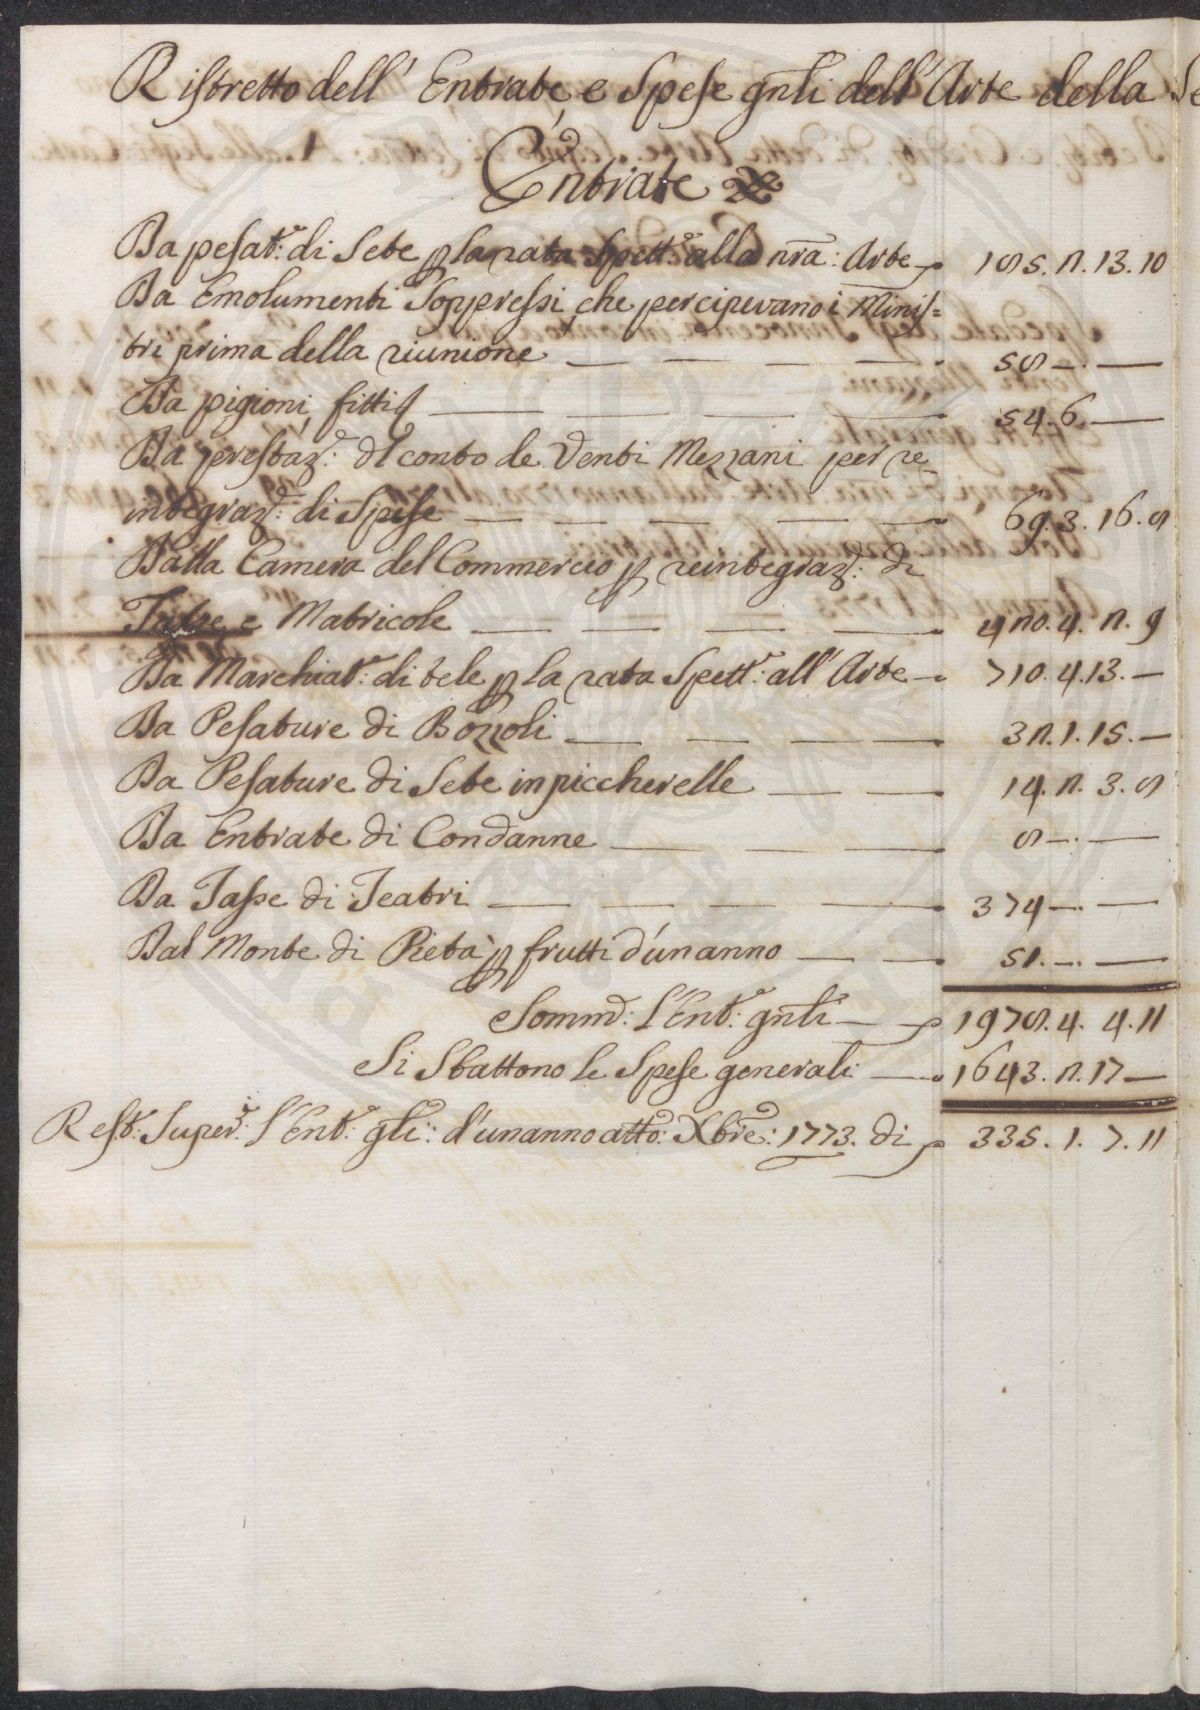 Ristretto dell' Entrate, e Spese gnli dell'Arte della Se
Entrate
Da pesat.e di Sete p la rata Spett.e alla nrã: Arte 185. 2. 13. 10
Da Emolumenti Soppressi, che percipevano i Minis=
tri prima della riunione — — — 58 —. —
Da pigioni, fitti — — — — 54. 6. —
Da prestaz.e: Dl conto de Venti Mezzani per re-
integraz.e: di Spese — — — — — 69. 3. 16. 8
Dalla Camera del Commercio p reintegraz.e: di
Tasse e Matricole — — — — 420. 4. 2. 9
Da Marchiat.e: di tele p la rata Spett.e: all' Arte — 710. 4. 13. —
Da Pesature di Bozzoli — — — — 32. 1. 15. —
Da Pesature di Sete in piccherelle — — 14. 2. 3. 8
Da Entrate di Condanne — — — 8 —. —
Da Tasse di Teatri — — — — 374 —. —
Dal Monte di Pietà p frutti d'un anno — — 51. —. —
Somm.o: l'Ent.e gnli — 1978. 4. 4. 11
Si Sbattono le Spese generali — 1643. 2. 17 —
Rest.o: Super.e: l'Ent.e: gli: d'un anno atto: Xbre: 1773. di 335. 1. 7. 11